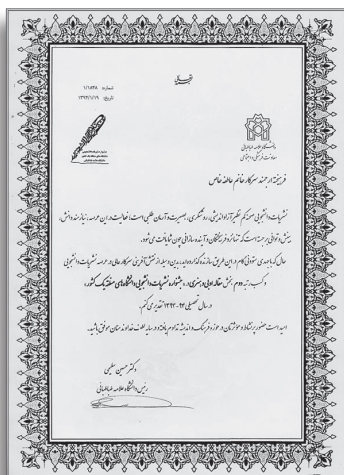 شماره: ۱/۱۸۳۸
تاریخ: ۱۳۹۴/۱/۱۹
دانشگاه علامه طباطبائی
معاونت فرهنگی و اجتماعی
فرهیخته ارجمند سرکار خانم عاطفه خاص
نشریات دانشجویی صحنه کم نظیر آزاداندیشی، روشنگری، بصیرت و آرمان طلبی است و فعالیت در این عرصه، نیازمند دانش،
بینش و توانی برجسته است که تنها نزد فرهیختگان و آینده سازانی چون شما یافت می شود.
حال که با جدی ستودنی گام در این طریق سازنده گذارده اید، بدین وسیله از نقش آفرینی سرکار عالی در عرصه نشریات دانشجویی
و کسب رتبه دوم بخش مقاله ادبی و هنری در جشنواره نشریات دانشجویی دانشگاه های منطقه یک کشور،
در سال تحصیلی ۹۳-۱۳۹۲ تقدیر می کنم.
امید است حضور پرنشاط و موثرتان در حوزه فرهنگ و اندیشه تداوم یافته و در سایه لطف خداوند منان موفق باشید.
دکتر حسین سلیمی
رئیس دانشگاه علامه طباطبائی